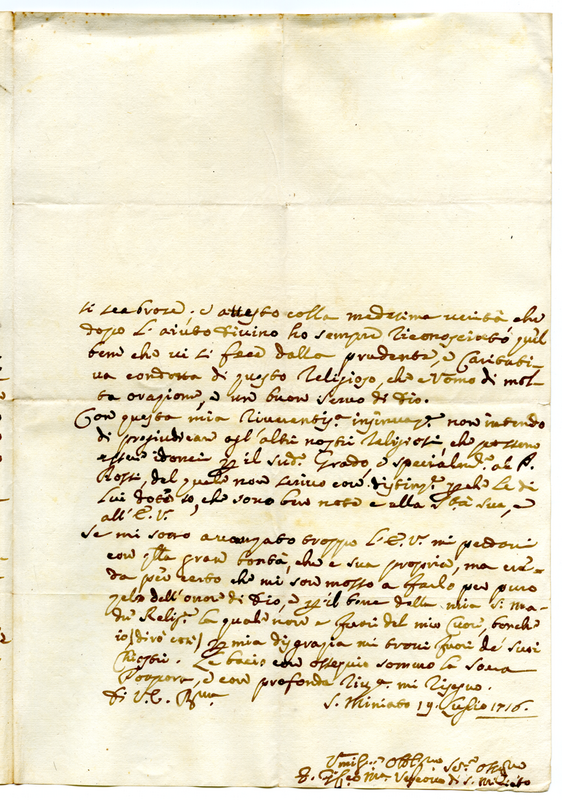 ti scabrose. e attesto colla medesima verità che
dopo l'aiuto divino ho sempre riconosciuto quel
bene che vi si face dalla prudente, e caritati
va condotta di questo Religioso, che e Uomo di mol-
ta orazione, e un buon servo di Dio.
Con questa mia riverentis.a insinuaz.e non intendo
di pregiudicare agl'altri nostri Religiosi, che possono
essere idonei il sud.o Grado, e specialm.e al P.
Rossi, del quale non scrivo con distinz.e le di
lui doti, che sono ben note e alla S.tà sua, e
all'E.V.
Se mi sono avanzato troppo l'E.V. mi perdoni
con q.lla gran bontà, che e sua propria, ma cre-
da per certo che mi son mosso a farlo per puro
zelo dell'onor di Dio, e il bene della mia S. Ma-
dre Relig.e la quale non e fuori del mio cuore, benche
io (dirò così) mia disgrazia mi trovi fuori de' suoi
Chiostri. Le bacio con ossequio sommo la Sacra
Porpora, e con profonda riv.a mi rassegno.
Di V.E. R.ma
S. Miniato 19. Luglio 1716.
Umil.mo Obblig.mo Ser.e Oss.mo
Vescovo di S. Miniato